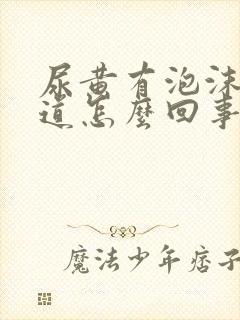 尿黄有泡沫
道怎麼回事
魔法少年痞子